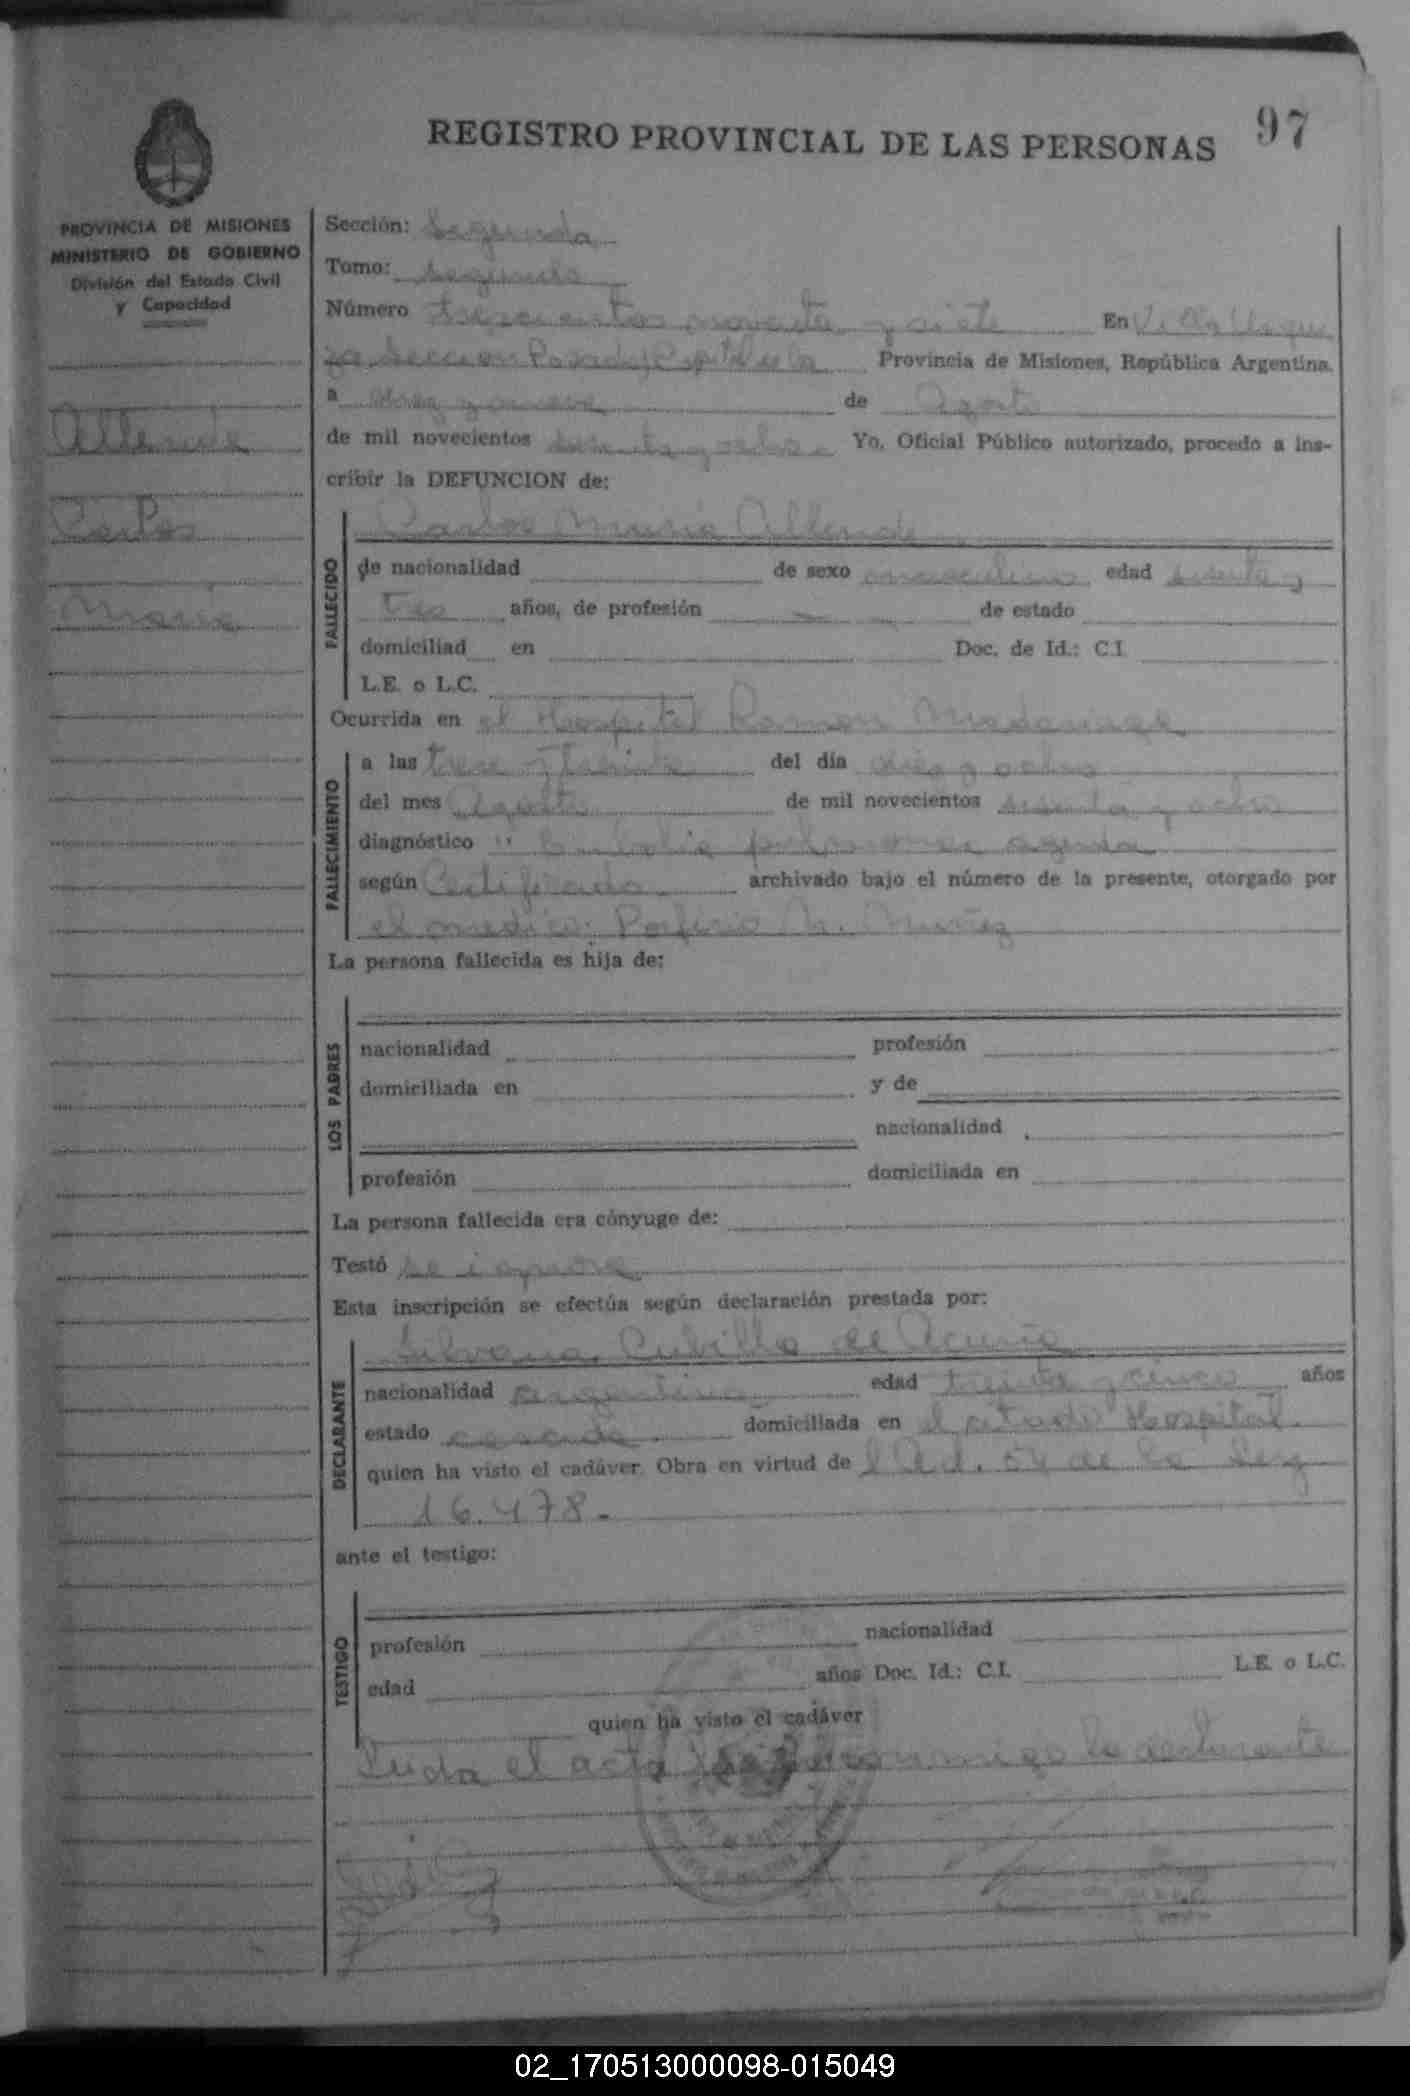 97
REGISTRO PROVINCIAL DE LAS PERSONAS
PROVINCIA DE MISIONES
MINISTERIO DE GOBIERNO
División del Estado Civil
y Capacidad
Allende
Carlos
Maria
Sección: Segunda
Tomo: segundo
Número trescientos noventa y siete En Villa Urqui
za Seccion Posadas Capital de la Provincia de Misiones, República Argentina,
a diez y nueve de Agosto
de mil novecientos sesenta y ocho. Yo, Oficial Público autorizado, procedo a ins-
cribir la DEFUNCION de:
Carlos Maria Allende
FALLECIDO
de nacionalidad de sexo masculino edad sesenta y
tres años, de profesión de estado
domiciliad en Doc. de Id.: C.I.
L.E. o L.C.
Ocurrida en el Hospital Ramon Madariaga
FALLECIMIENTO
a las trece y treinta del día diez y ocho
del mes Agosto de mil novecientos sesenta y ocho
diagnóstico " Embolia pulmonar aguda
según Certificado archivado bajo el número de la presente, otorgado por
el medico: Porfirio M. Muñiz
La persona fallecida es hija de:
LOS PADRES
nacionalidad profesión
domiciliada en y de
nacionalidad
profesión domiciliada en
La persona fallecida era cónyuge de:
Testó se ignora
Esta inscripción se efectúa según declaración prestada por:
Silvana Cubilla de Acuña
DECLARANTE
nacionalidad argentina edad treinta y cinco años
estado casada. domiciliada en el citado Hospital.
quien ha visto el cadáver. Obra en virtud de l'Ad. 54 de la Ley
16.478.
ante el testigo:
TESTIGO
profesión nacionalidad
edad años Doc. Id.: C.I. L.E. o L.C.
quien ha visto el cadáver
Leida el acta conmigo la declarante
02_170513000098-015049